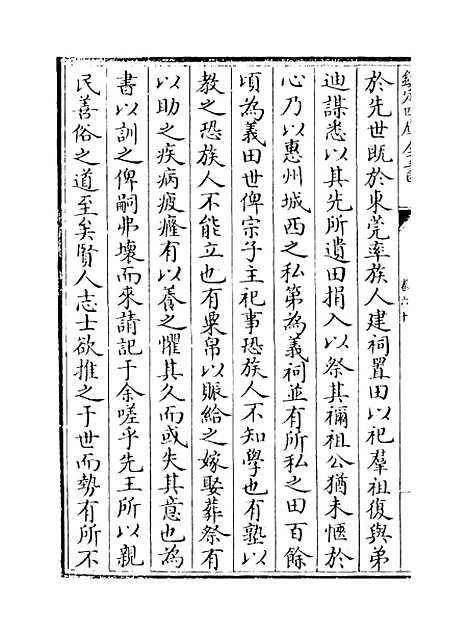 欽定四庫全書
卷六十
於先世既於東莞率族人建祠置田以祀羣祖復與弟
迪謀悉以其先所遺田捐入以祭其禰祖公猶未愜於
心乃以惠州城西之私第為義祠並有所私之田百餘
頃為義田世俾宗子主祀事恐族人不知學也有塾以
教之恐族人不能立也有粟帛以賑給之嫁娶葬祭有
以助之疾病疲癃有以養之懼其久而或失其意也為
書以訓之俾嗣弗壞而來請記于余嗟乎先王所以親
民善俗之道至矣賢人志士欲推之于世而勢有所不